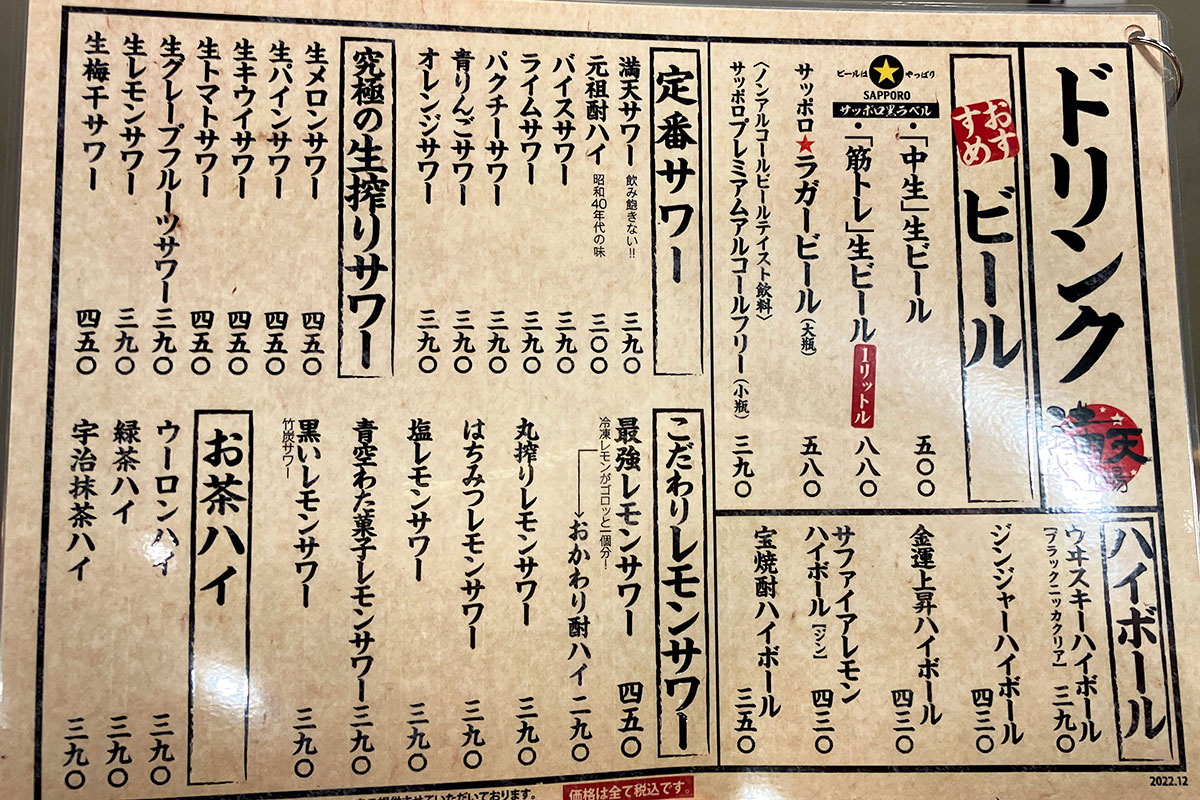 ドリンク
満天
おすすめ
ビール
ビールは やっぱり
SAPPORO
サッポロ黒ラベル
・「中生」生ビール 五〇〇
・「筋トレ」生ビール 1リットル 八八〇
サッポロ★ラガービール（大瓶） 五八〇
〈ノンアルコールビールテイスト飲料〉
サッポロプレミアムアルコールフリー（小瓶） 三九〇
ハイボール
ウヰスキーハイボール 三九〇
［ブラックニッカクリア］
ジンジャーハイボール 四三〇
金運上昇ハイボール 四三〇
サファイアレモン
ハイボール［ジン］ 四三〇
宝焼酎ハイボール 三五〇
定番サワー
満天サワー 飲み飽きない!! 三九〇
元祖酎ハイ 昭和40年代の味 三〇〇
バイスサワー 三九〇
ライムサワー 三九〇
パクチーサワー 三九〇
青りんごサワー 三九〇
オレンジサワー 三九〇
究極の生搾りサワー
生メロンサワー 四五〇
生パインサワー 四五〇
生キウイサワー 四五〇
生トマトサワー 四五〇
生グレープフルーツサワー 三九〇
生レモンサワー 三九〇
生梅干サワー 四五〇
こだわりレモンサワー
最強レモンサワー 四五〇
冷凍レモンがゴロッと一個分!
→おかわり酎ハイ 二九〇
丸搾りレモンサワー 三九〇
はちみつレモンサワー 三九〇
塩レモンサワー 三九〇
青空わた菓子レモンサワー 三九〇
黒いレモンサワー 三九〇
竹炭サワー
お茶ハイ
ウーロンハイ 三九〇
緑茶ハイ 三九〇
宇治抹茶ハイ 三九〇
させていただいております。
価格は全て税込です。
2022.12